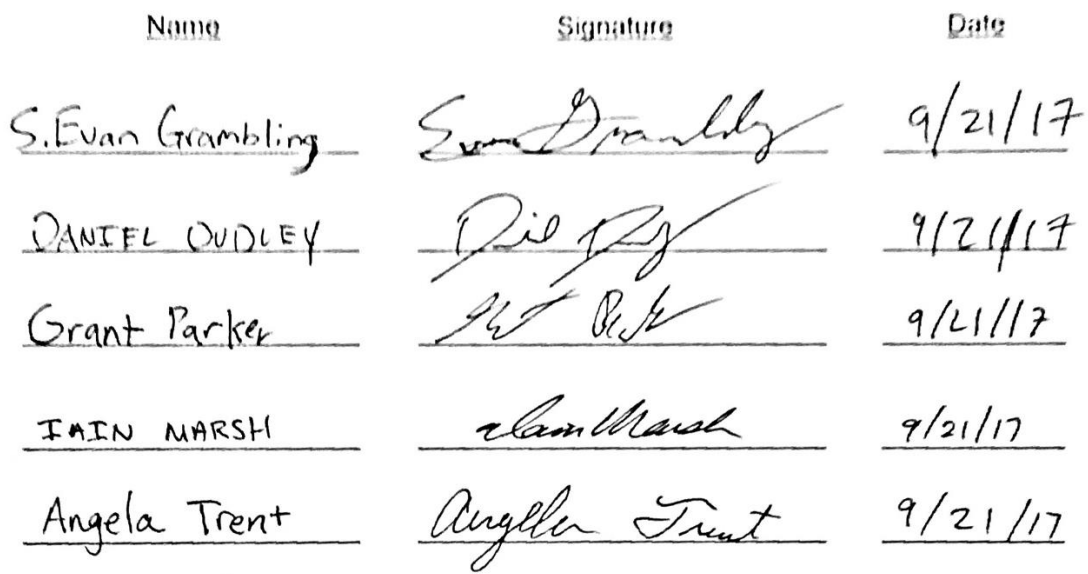 Name Signature Date
S. Evan Grambling Evan Grambling 9/21/17
DANIEL DUDLEY 9/21/17
Grant Parker 9/21/17
IAIN MARSH Iain Marsh 9/21/17
Angela Trent Angela Trent 9/21/17